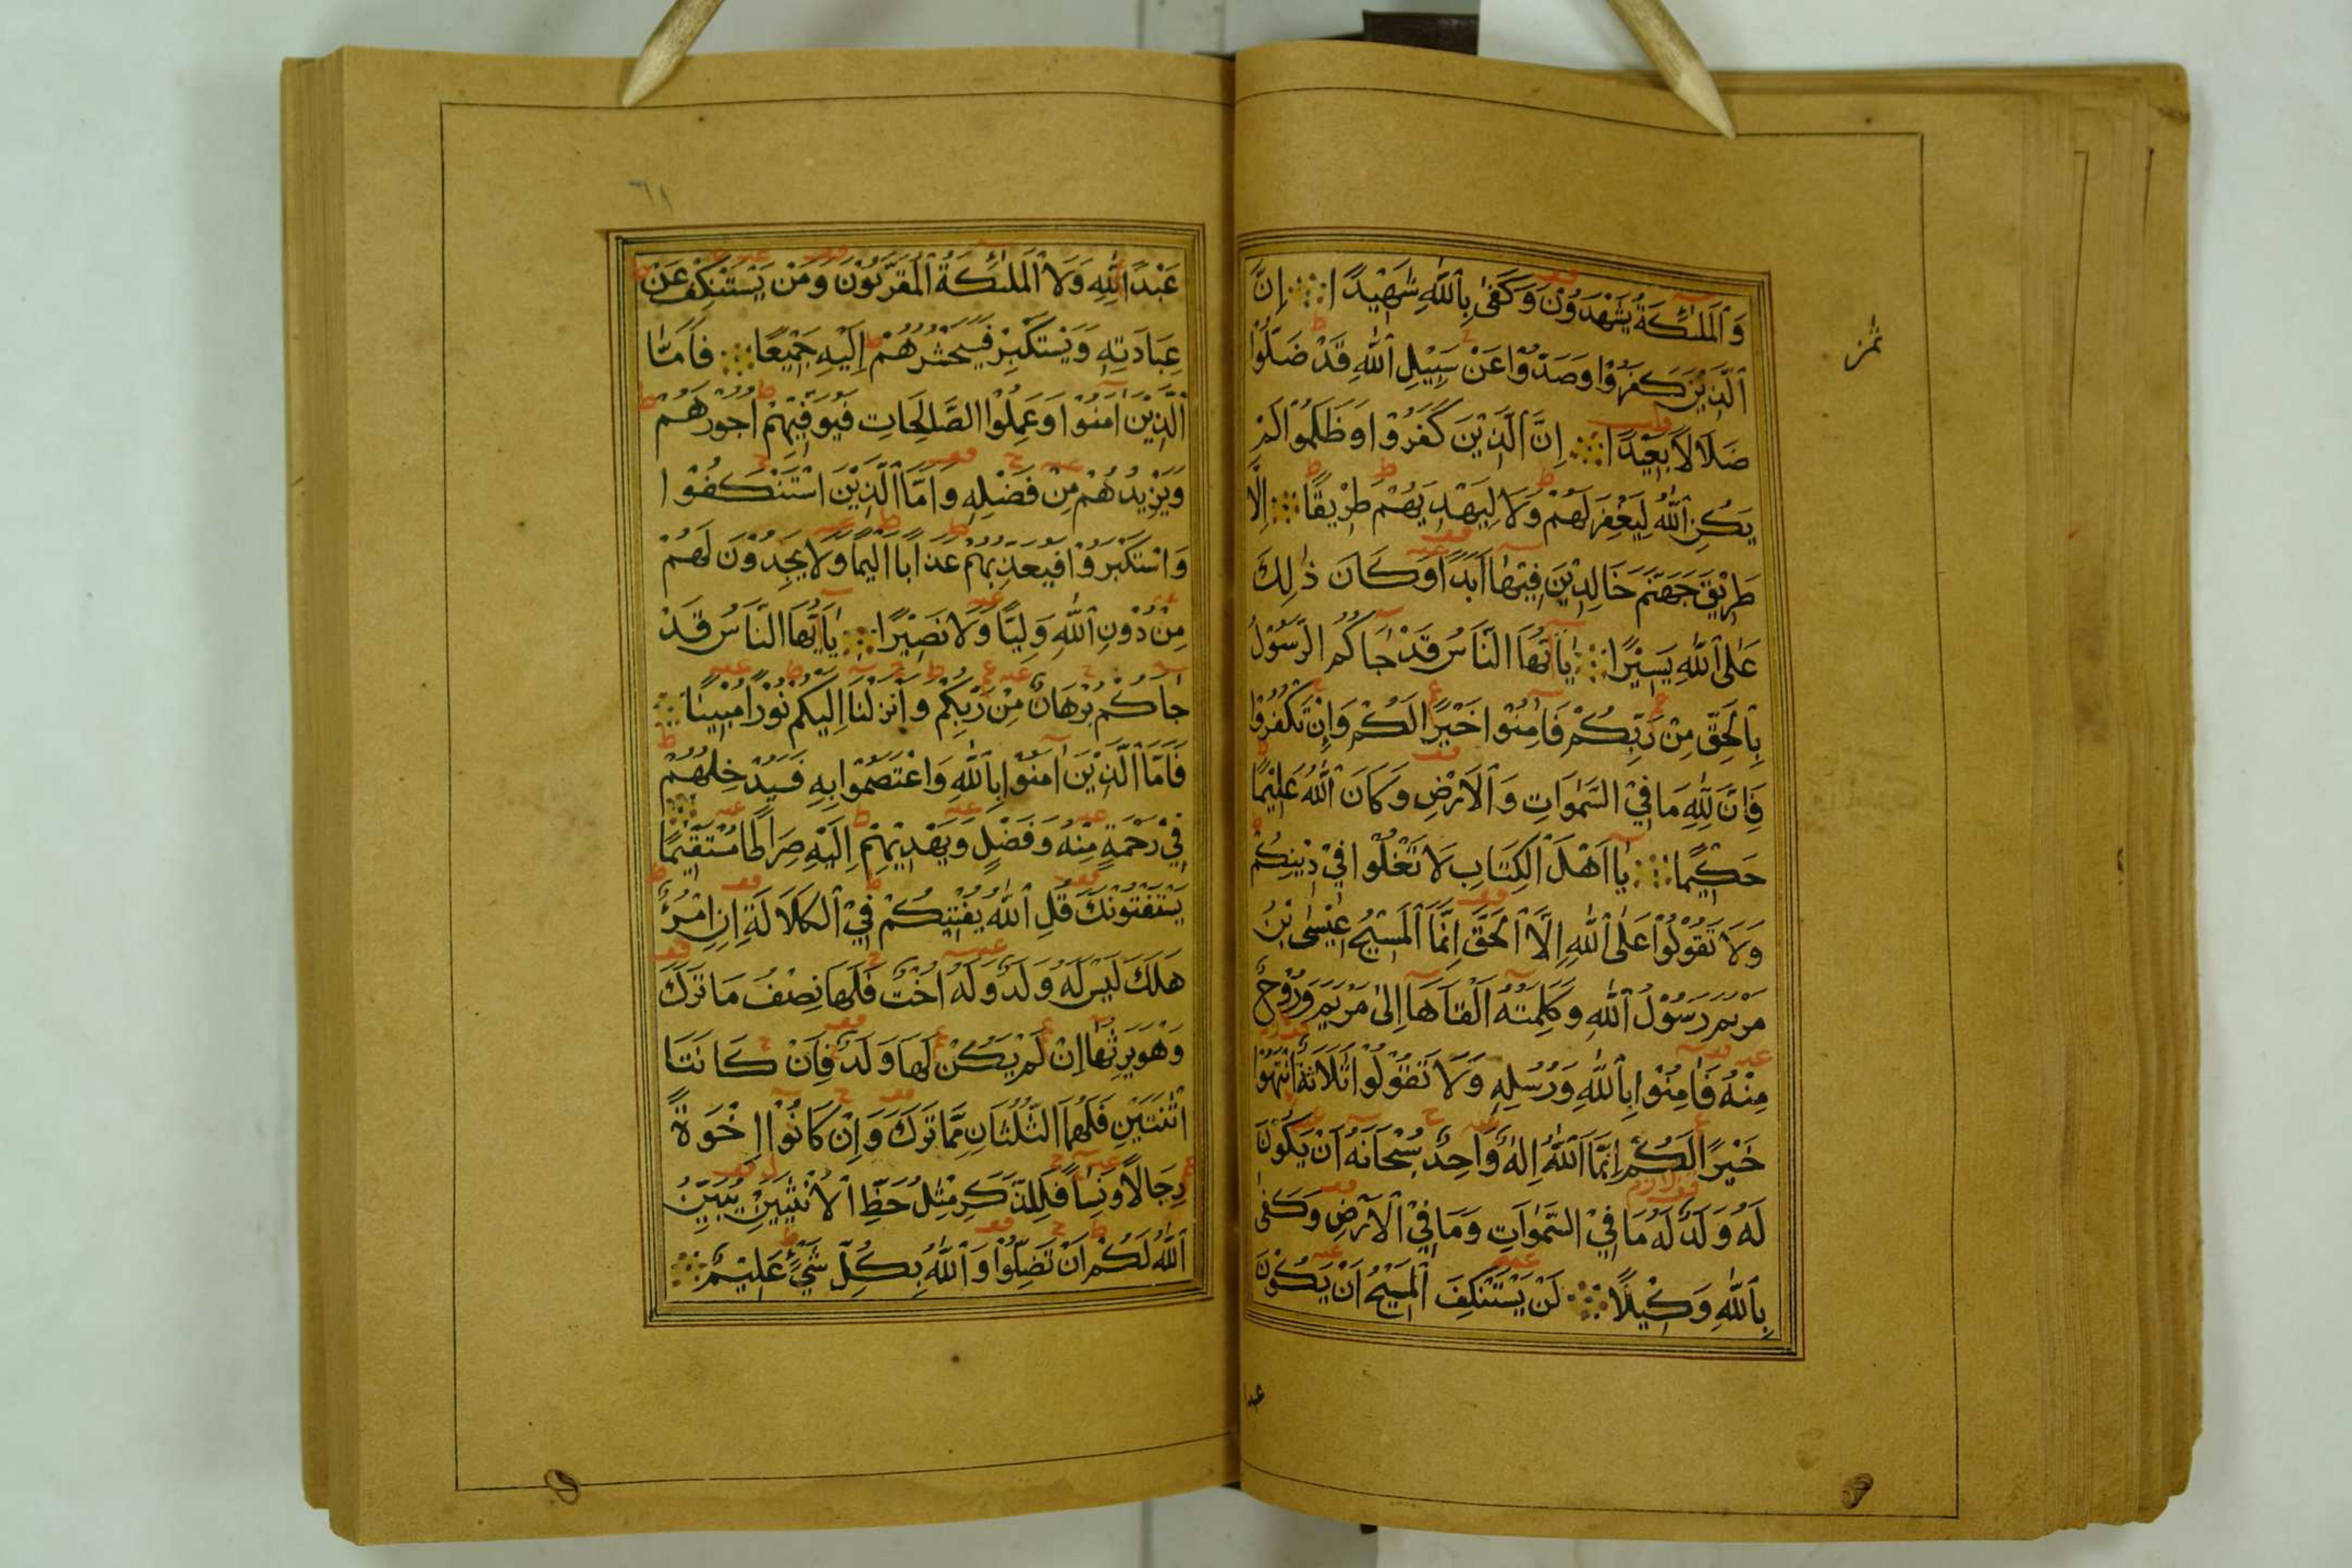 وَالْمَلٰٓئِكَةُ يَشْهَدُوْنَ وَكَفٰى بِاللّٰهِ شَهِيْدًا اِنَّ
الَّذِيْنَ كَفَرُوْا وَصَدُّوْا عَنْ سَبِيْلِ اللّٰهِ قَدْ ضَلُّوْا
ضَلَالًا بَعِيْدًا اِنَّ الَّذِيْنَ كَفَرُوْا وَظَلَمُوْا لَمْ
يَكُنِ اللّٰهُ لِيَغْفِرَ لَهُمْ وَلَا لِيَهْدِيَهُمْ طَرِيْقًا اِلَّا
طَرِيْقَ جَهَنَّمَ خَالِدِيْنَ فِيْهَا اَبَدًا وَكَانَ ذٰلِكَ
عَلَى اللّٰهِ يَسِيْرًا يٰٓاَيُّهَا النَّاسُ قَدْ جَآكُمُ الرَّسُوْلُ
بِالْحَقِّ مِنْ رَبِّكُمْ فَاٰمِنُوْا خَيْرًا لَكُمْ وَاِنْ تَكْفُرُوْا
فَاِنَّ لِلّٰهِ مَا فِيْ السَّمٰوَاتِ وَالْاَرْضِ وَكَانَ اللّٰهُ عَلِيْمًا
حَكِيْمًا يٰٓا اَهْلَ الْكِتَابِ لَا تَغْلُوْا فِيْ دِيْنِكُمْ
وَلَا تَقُوْلُوْا عَلَى اللّٰهِ اِلَّا الْحَقَّ اِنَّمَا الْمَسِيْحُ عِيْسٰى بْنُ
مَرْيَمَ رَسُوْلُ اللّٰهِ وَكَلِمَتُهُ اَلْقَاهَا اِلٰى مَرْيَمَ وَرُوْحٌ
مِنْهُ فَاٰمِنُوْا بِاللّٰهِ وَرُسُلِهٖ وَلَا تَقُوْلُوْا ثَلَاثَةٌ انْتَهُوْا
خَيْرًا لَكُمْ اِنَّمَا اللّٰهُ اِلٰهٌ وَاحِدٌ سُبْحَانَهُ اَنْ يَكُوْنَ
لَهُ وَلَدٌ لَهُ مَا فِيْ السَّمٰوَاتِ وَمَا فِيْ الْاَرْضِ وَكَفٰى
بِاللّٰهِ وَكِيْلًا لَنْ يَسْتَنْكِفَ الْمَسِيْحُ اَنْ يَكُوْنَ
عبدا
٦١
عَبْدًا لِلّٰهِ وَلَا الْمَلٰٓئِكَةُ الْمُقَرَّبُوْنَ وَمَنْ يَسْتَنْكِفْ عَنْ
عِبَادَتِهٖ وَيَسْتَكْبِرْ فَسَيَحْشُرُهُمْ اِلَيْهِ جَمِيْعًا فَاَمَّا
الَّذِيْنَ اٰمَنُوْا وَعَمِلُوا الصَّالِحَاتِ فَيُوَفِّيْهِمْ اُجُوْرَهُمْ
وَيَزِيْدُهُمْ مِنْ فَضْلِهٖ وَاَمَّا الَّذِيْنَ اسْتَنْكَفُوْا
وَاسْتَكْبَرُوْا فَيُعَذِّبُهُمْ عَذَابًا اَلِيْمًا وَلَا يَجِدُوْنَ لَهُمْ
مِنْ دُوْنِ اللّٰهِ وَلِيًّا وَلَا نَصِيْرًا يٰٓاَيُّهَا النَّاسُ قَدْ
جَآكُمْ بُرْهَانٌ مِنْ رَبِّكُمْ وَاَنْزَلْنَا اِلَيْكُمْ نُوْرًا مُبِيْنًا
فَاَمَّا الَّذِيْنَ اٰمَنُوْا بِاللّٰهِ وَاعْتَصَمُوْا بِهٖ فَسَيُدْخِلُهُمْ
فِيْ رَحْمَةٍ مِنْهُ وَفَضْلٍ وَيَهْدِيْهِمْ اِلَيْهِ صِرَاطًا مُسْتَقِيْمًا
يَسْتَفْتُوْنَكَ قُلِ اللّٰهُ يُفْتِيْكُمْ فِيْ الْكَلَالَةِ اِنِ امْرُؤٌ
هَلَكَ لَيْسَ لَهُ وَلَدٌ وَلَهُ اُخْتٌ فَلَهَا نِصْفُ مَا تَرَكَ
وَهُوَ يَرِثُهَا اِنْ لَمْ يَكُنْ لَهَا وَلَدٌ فَاِنْ كَانَتَا
اثْنَتَيْنِ فَلَهُمَا الثُّلُثَانِ مِمَّا تَرَكَ وَاِنْ كَانُوْا اِخْوَةً
رِجَالًا وَنِسَآءً فَلِلذَّكَرِ مِثْلُ حَظِّ الْاُنْثَيَيْنِ يُبَيِّنُ
اللّٰهُ لَكُمْ اَنْ تَضِلُّوْا وَاللّٰهُ بِكُلِّ شَيْءٍ عَلِيْمٌ